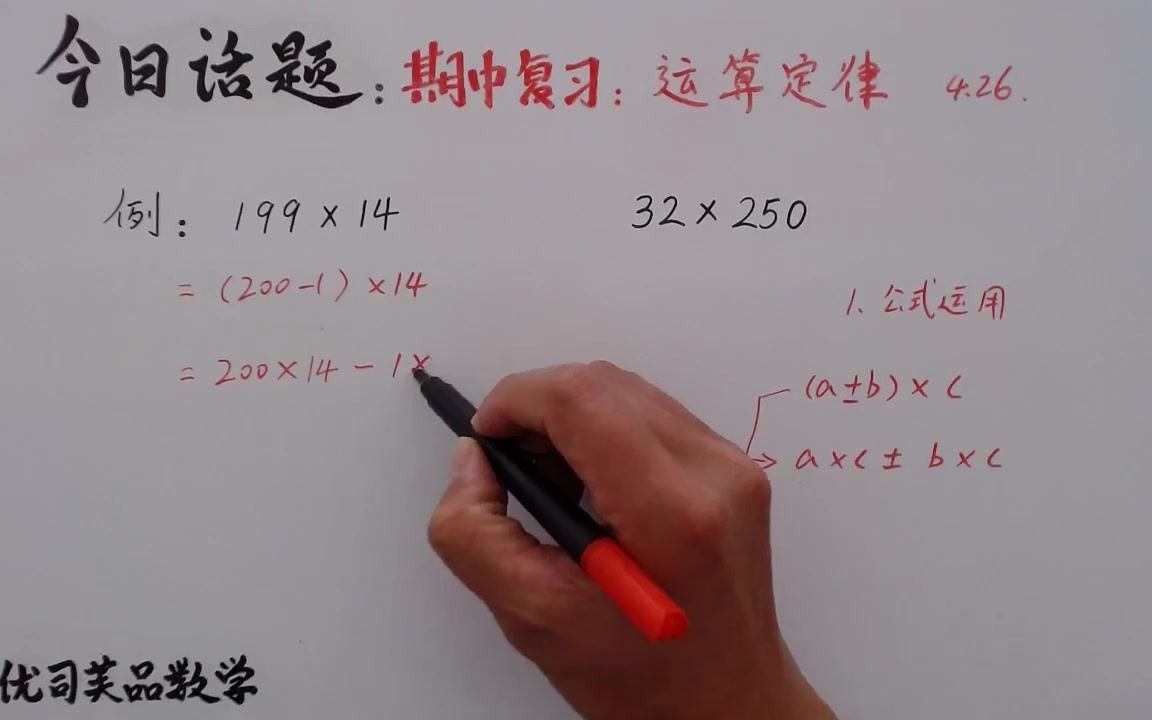 今日话题：期中复习：运算定律 4.26.
例： 199 × 14
= (200-1) ×14
= 200×14 - 1×
32 × 250
1. 公式运用
(a±b) × c
a×c ± b×c
优司芙品数学